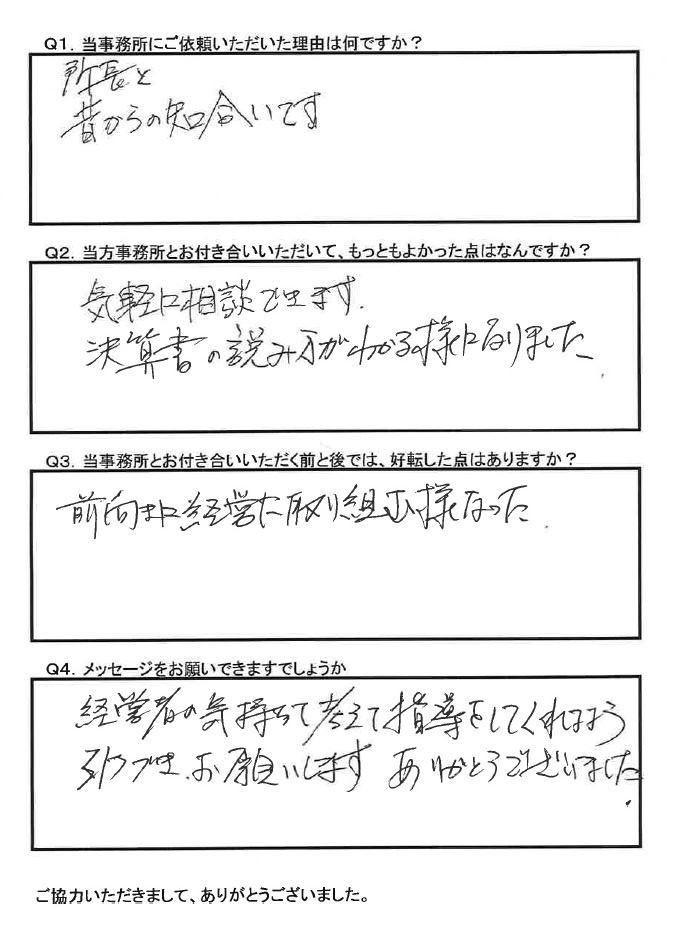 Q1．当事務所にご依頼いただいた理由は何ですか？
所長と
昔からの知合いです
Q2．当方事務所とお付き合いいただいて、もっともよかった点はなんですか？
気軽に相談できます.
決算書の説み方がわかる様になりました
Q3．当事務所とお付き合いいただく前と後では、好転した点はありますか？
前向きに経営に取り組む様なった.
Q4．メッセージをお願いできますでしょうか
経営者の気持ちで考えて指導をしてくれるよう
引つづき、お願いします ありがとうございました.
ご協力いただきまして、ありがとうございました。